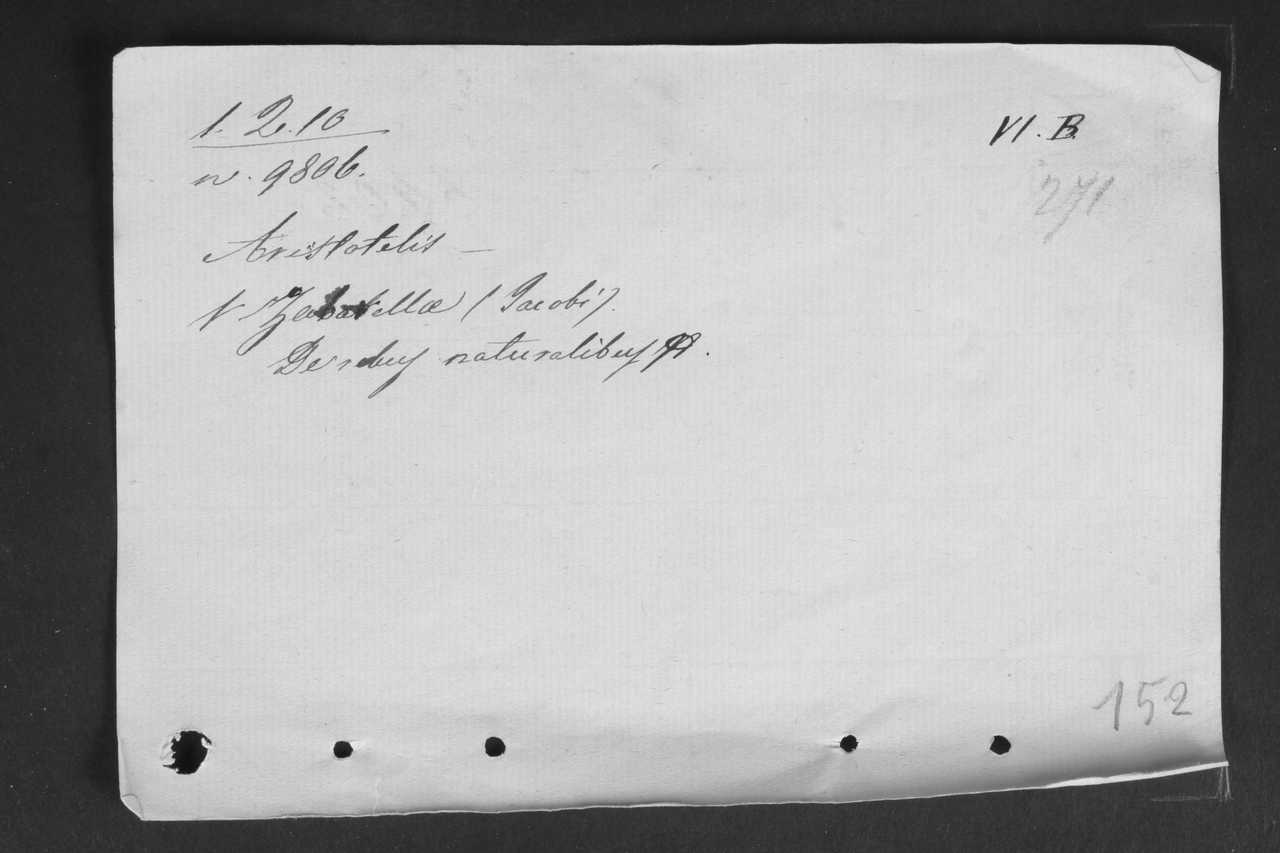 1. 2. 10
VI. B.
n. 9806.
271
Aristotelis —
V Zabarellæ (Jacobi).
De rebus naturalibus
152